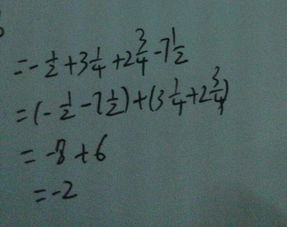 =-1/2+3 1/4+2 3/4-7 1/2
=(-1/2-7 1/2)+(3 1/4+2 3/4)
=-8+6
=-2